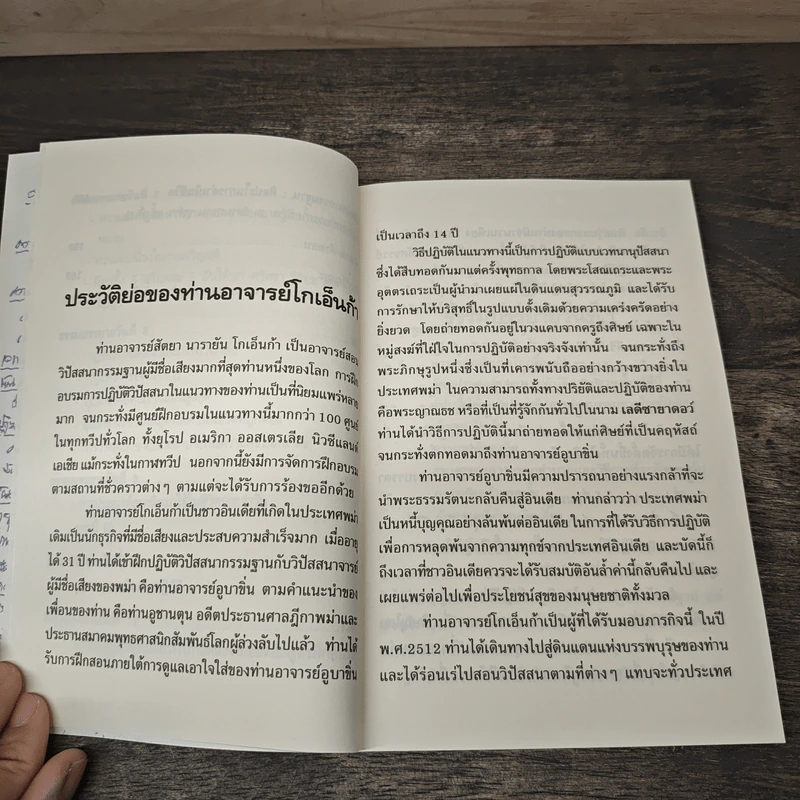 ประวัติย่อของท่านอาจารย์โกเอ็นก้า
ท่านอาจารย์สัตยา นารายัน โกเอ็นก้า เป็นอาจารย์สอน
วิปัสสนากรรมฐานผู้มีชื่อเสียงมากที่สุดท่านหนึ่งของโลก การฝึก
อบรมการปฏิบัติวิปัสสนาในแนวทางของท่านเป็นที่นิยมแพร่หลาย
มาก จนกระทั่งมีศูนย์ฝึกอบรมในแนวทางนี้มากกว่า 100 ศูนย์
ในทุกทวีปทั่วโลก ทั้งยุโรป อเมริกา ออสเตรเลีย นิวซีแลนด์
เอเชีย แม้กระทั่งในกาฬทวีป นอกจากนี้ยังมีการจัดการฝึกอบรม
ตามสถานที่ชั่วคราวต่างๆ ตามแต่จะได้รับการร้องขออีกด้วย
ท่านอาจารย์โกเอ็นก้าเป็นชาวอินเดียที่เกิดในประเทศพม่า
เดิมเป็นนักธุรกิจที่มีชื่อเสียงและประสบความสำเร็จมาก เมื่ออายุ
ได้ 31 ปี ท่านได้เข้าฝึกปฏิบัติวิปัสสนากรรมฐานกับวิปัสสนาจารย์
ผู้มีชื่อเสียงของพม่า คือท่านอาจารย์อูบาขิ่น ตามคำแนะนำของ
เพื่อนของท่าน คือท่านอูชานตุน อดีตประธานศาลฎีกาพม่าและ
ประธานสมาคมพุทธศาสนิกสัมพันธ์โลกผู้ล่วงลับไปแล้ว ท่านได้
รับการฝึกสอนภายใต้การดูแลเอาใจใส่ของท่านอาจารย์อูบาขิ่น
เป็นเวลาถึง 14 ปี
วิธีปฏิบัติในแนวทางนี้เป็นการปฏิบัติแบบเวทนานุปัสสนา
ซึ่งได้สืบทอดกันมาแต่ครั้งพุทธกาล โดยพระโสณเถระและพระ
อุตตรเถระเป็นผู้นำมาเผยแผ่ในดินแดนสุวรรณภูมิ และได้รับ
การรักษาให้บริสุทธิ์ในรูปแบบดั้งเดิมด้วยความเคร่งครัดอย่าง
ยิ่งยวด โดยถ่ายทอดกันอยู่ในวงแคบจากครูถึงศิษย์ เฉพาะใน
หมู่สงฆ์ที่ใฝ่ใจในการปฏิบัติอย่างจริงจังเท่านั้น จนกระทั่งถึง
พระภิกษุรูปหนึ่งซึ่งเป็นที่เคารพนับถืออย่างกว้างขวางยิ่งใน
ประเทศพม่า ในความสามารถทั้งทางปริยัติและปฏิบัติของท่าน
คือพระญาณธช หรือที่เป็นที่รู้จักกันทั่วไปในนาม เลดีซายาดอว์
ท่านได้นำวิธีการปฏิบัตินี้มาถ่ายทอดให้แก่ศิษย์ที่เป็นคฤหัสถ์
จนกระทั่งตกทอดมาถึงท่านอาจารย์อูบาขิ่น
ท่านอาจารย์อูบาขิ่นมีความปรารถนาอย่างแรงกล้าที่จะ
นำพระธรรมรัตนะกลับคืนสู่อินเดีย ท่านกล่าวว่า ประเทศพม่า
เป็นหนี้บุญคุณอย่างล้นพ้นต่ออินเดีย ในการที่ได้รับวิธีการปฏิบัติ
เพื่อการหลุดพ้นจากความทุกข์จากประเทศอินเดีย และบัดนี้ก็
ถึงเวลาที่ชาวอินเดียควรจะได้รับสมบัติอันล้ำค่านี้กลับคืนไป และ
เผยแพร่ต่อไปเพื่อประโยชน์สุขของมนุษยชาติทั้งมวล
ท่านอาจารย์โกเอ็นก้าเป็นผู้ที่ได้รับมอบภารกิจนี้ ในปี
พ.ศ.2512 ท่านได้เดินทางไปสู่ดินแดนแห่งบรรพบุรุษของท่าน
และได้ร่อนเร่ไปสอนวิปัสสนาตามที่ต่างๆ แทบจะทั่วประเทศ